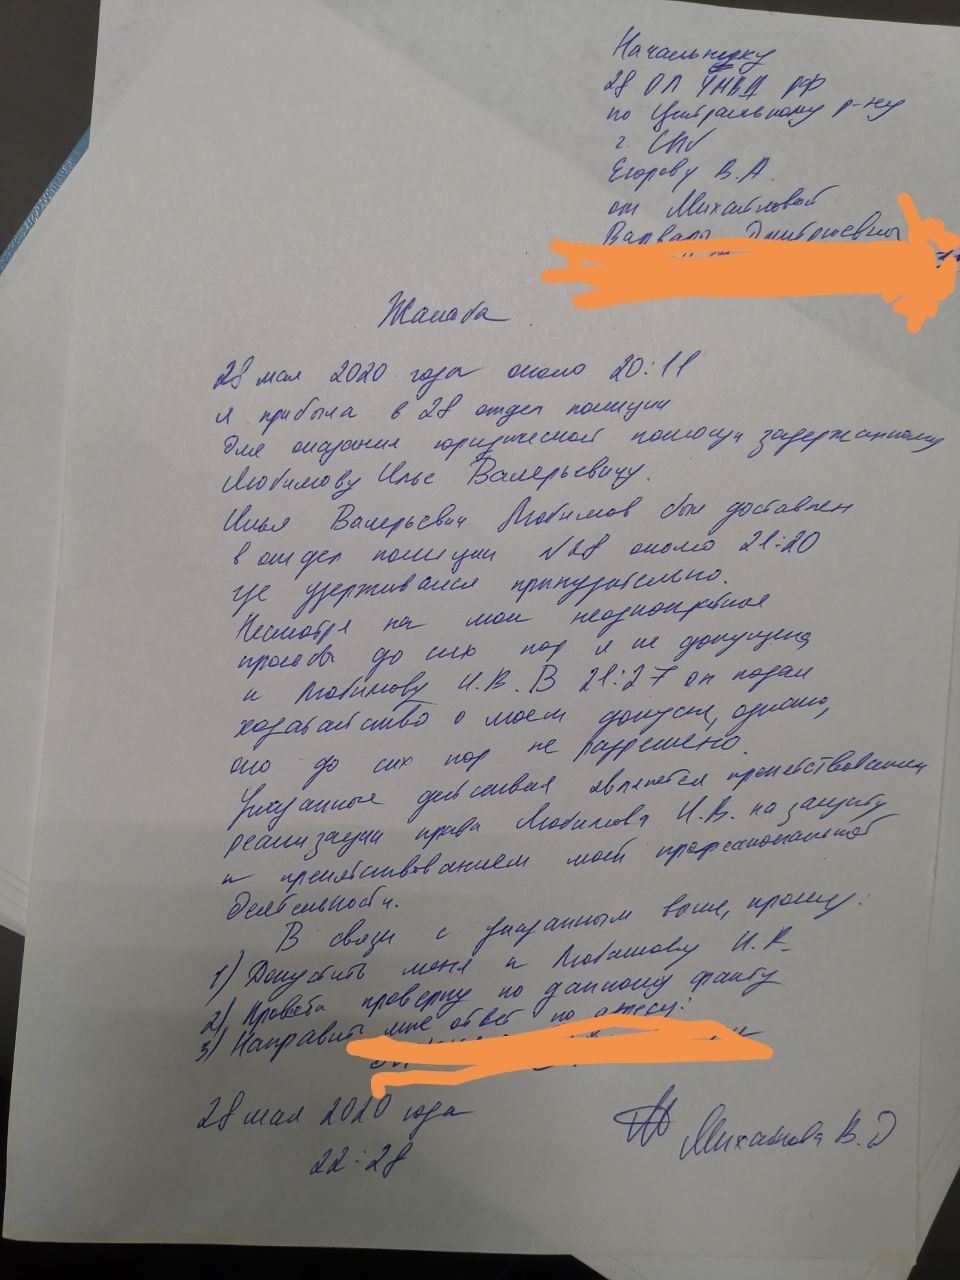 Начальнику
28 ОП УМВД РФ
по Центральному р-ну
г. СПб
Егорову В.А.
от Михайловой
Варвары Дмитриевны
Жалоба
28 мая 2020 года около 20:11
я прибыла в 28 отдел полиции
для оказания юридической помощи задержанному
Любимову Илье Валерьевичу.
Илья Валерьевич Любимов был доставлен
в отдел полиции №28 около 21:20
где удерживался принудительно.
Несмотря на мои неоднократные
просьбы до сих пор я не допущена
к Любимову И.В. В 21:27 он подал
ходатайство о моем допуске, однако,
оно до сих пор не разрешено.
Указанные действия является препятствованием
реализации права Любимова И.В. на защиту
и препятствованием моей профессиональной
деятельности.
В связи с указанным выше, прошу:
1) Допустить меня к Любимову И.В.
2) Провести проверку по данному факту
3) Направить мне ответ по адресу:
28 мая 2020 года
22:28
Михайлова В.Д